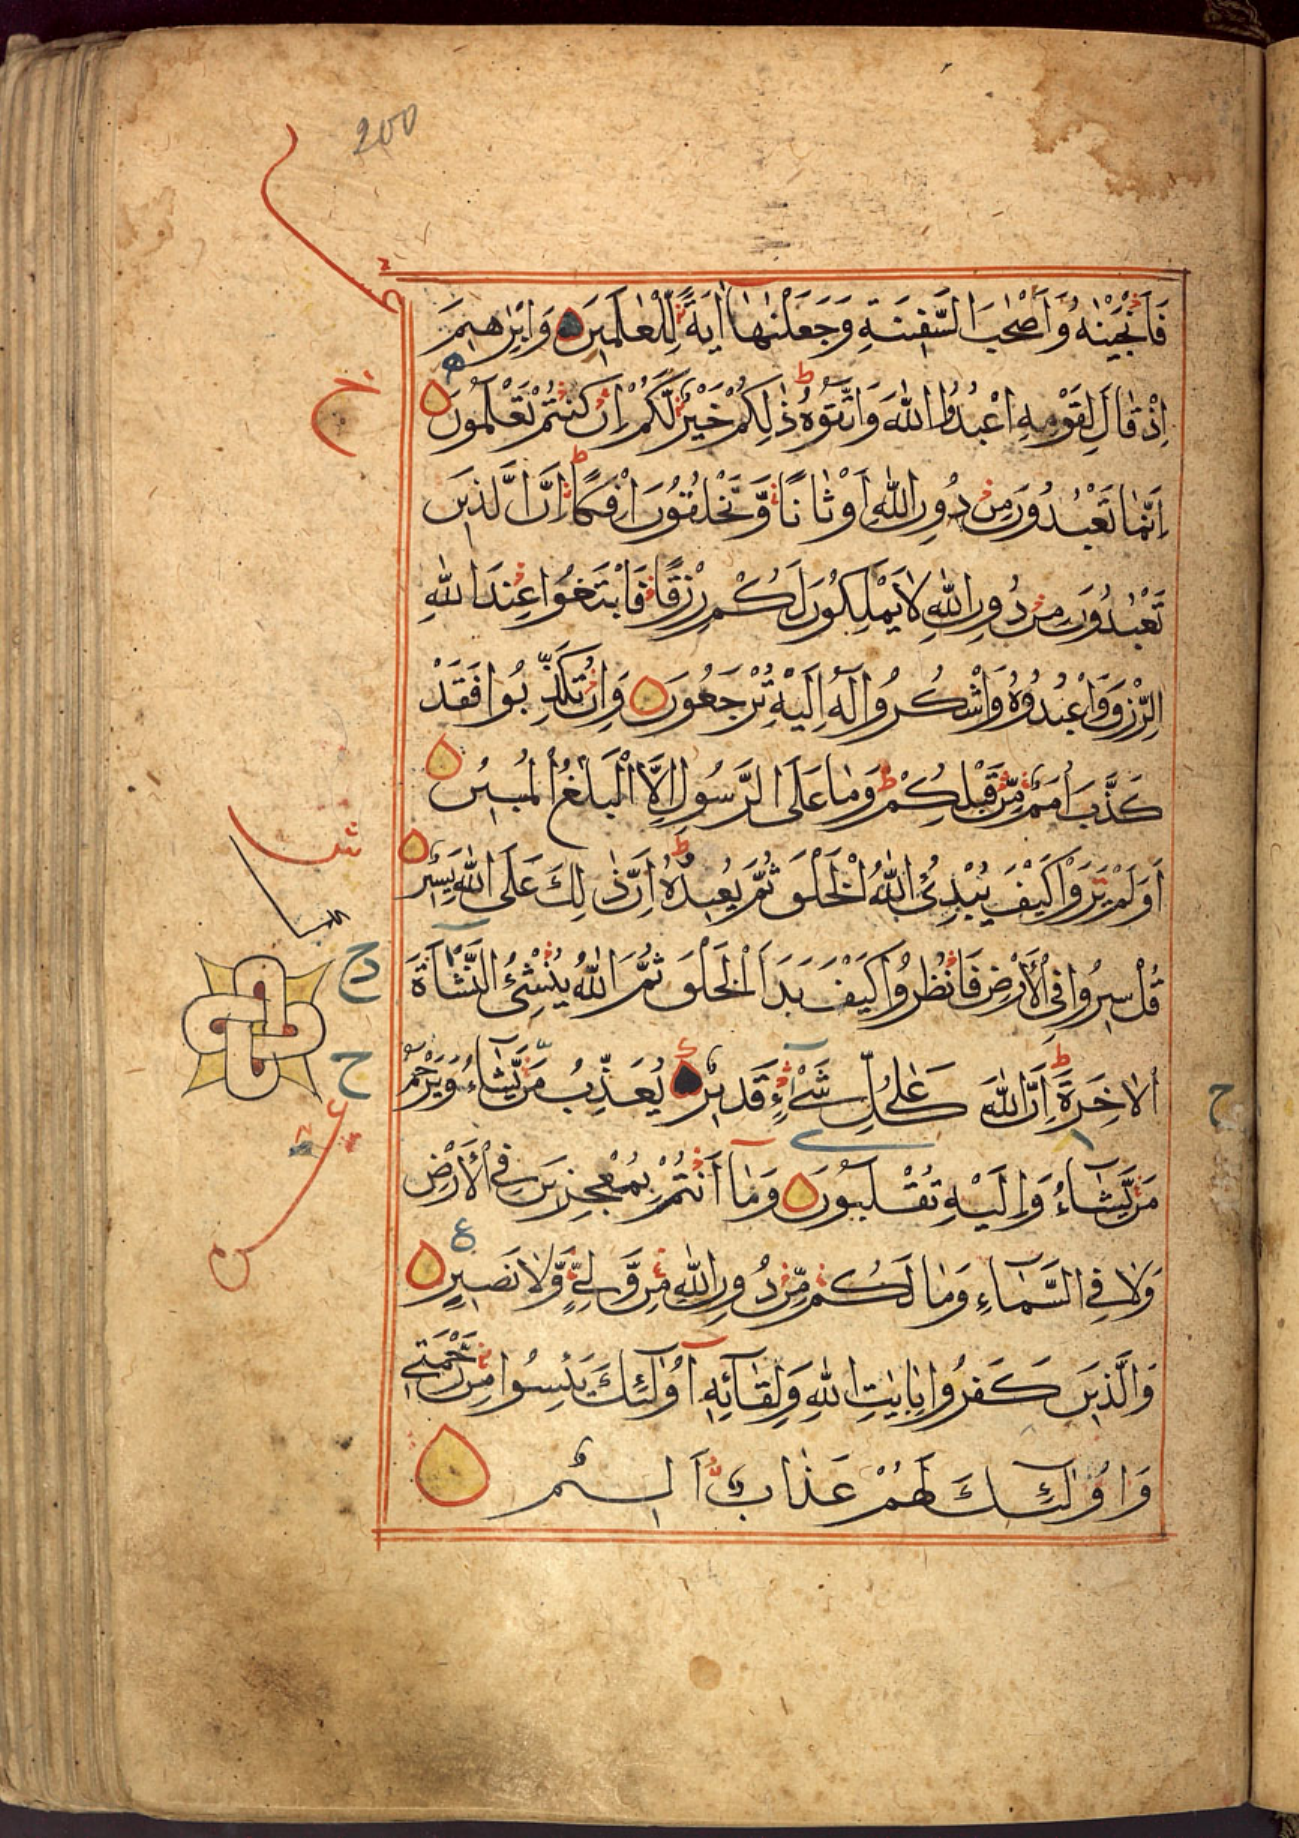 200
فَاَنْجَيْنٰهُ وَاَصْحٰبَ السَّفِيْنَةِ وَجَعَلْنٰهَآ اٰيَةً لِّلْعٰلَمِيْنَ وَاِبْرٰهِيْمَ
اِذْ قَالَ لِقَوْمِهِ اعْبُدُوا اللّٰهَ وَاتَّقُوْهُ ذٰلِكُمْ خَيْرٌ لَّكُمْ اِنْ كُنْتُمْ تَعْلَمُوْنَ
اِنَّمَا تَعْبُدُوْنَ مِنْ دُوْنِ اللّٰهِ اَوْثَانًا وَّتَخْلُقُوْنَ اِفْكًا اِنَّ الَّذِيْنَ
تَعْبُدُوْنَ مِنْ دُوْنِ اللّٰهِ لَا يَمْلِكُوْنَ لَكُمْ رِزْقًا فَابْتَغُوْا عِنْدَ اللّٰهِ
الرِّزْقَ وَاعْبُدُوْهُ وَاشْكُرُوْا لَهٗ اِلَيْهِ تُرْجَعُوْنَ وَاِنْ تُكَذِّبُوْا فَقَدْ
كَذَّبَ اُمَمٌ مِّنْ قَبْلِكُمْ وَمَا عَلَى الرَّسُوْلِ اِلَّا الْبَلٰغُ الْمُبِيْنُ
اَوَلَمْ يَرَوْا كَيْفَ يُبْدِئُ اللّٰهُ الْخَلْقَ ثُمَّ يُعِيْدُهٗ اِنَّ ذٰلِكَ عَلَى اللّٰهِ يَسِيْرٌ
قُلْ سِيْرُوْا فِى الْاَرْضِ فَانْظُرُوْا كَيْفَ بَدَاَ الْخَلْقَ ثُمَّ اللّٰهُ يُنْشِئُ النَّشْاَةَ
الْاٰخِرَةَ اِنَّ اللّٰهَ عَلٰى كُلِّ شَىْءٍ قَدِيْرٌ يُعَذِّبُ مَنْ يَّشَآءُ وَيَرْحَمُ
مَنْ يَّشَآءُ وَاِلَيْهِ تُقْلَبُوْنَ وَمَآ اَنْتُمْ بِمُعْجِزِيْنَ فِى الْاَرْضِ
وَلَا فِى السَّمَآءِ وَمَا لَكُمْ مِّنْ دُوْنِ اللّٰهِ مِنْ وَّلِىٍّ وَّلَا نَصِيْرٍ
وَالَّذِيْنَ كَفَرُوْا بِاٰيٰتِ اللّٰهِ وَلِقَآئِهٖٓ اُولٰٓئِكَ يَئِسُوْا مِنْ رَّحْمَتِيْ
وَاُولٰٓئِكَ لَهُمْ عَذَابٌ اَلِيْمٌ